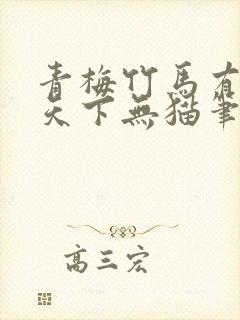 青梅竹馬有
天下無貓筆
高三宏